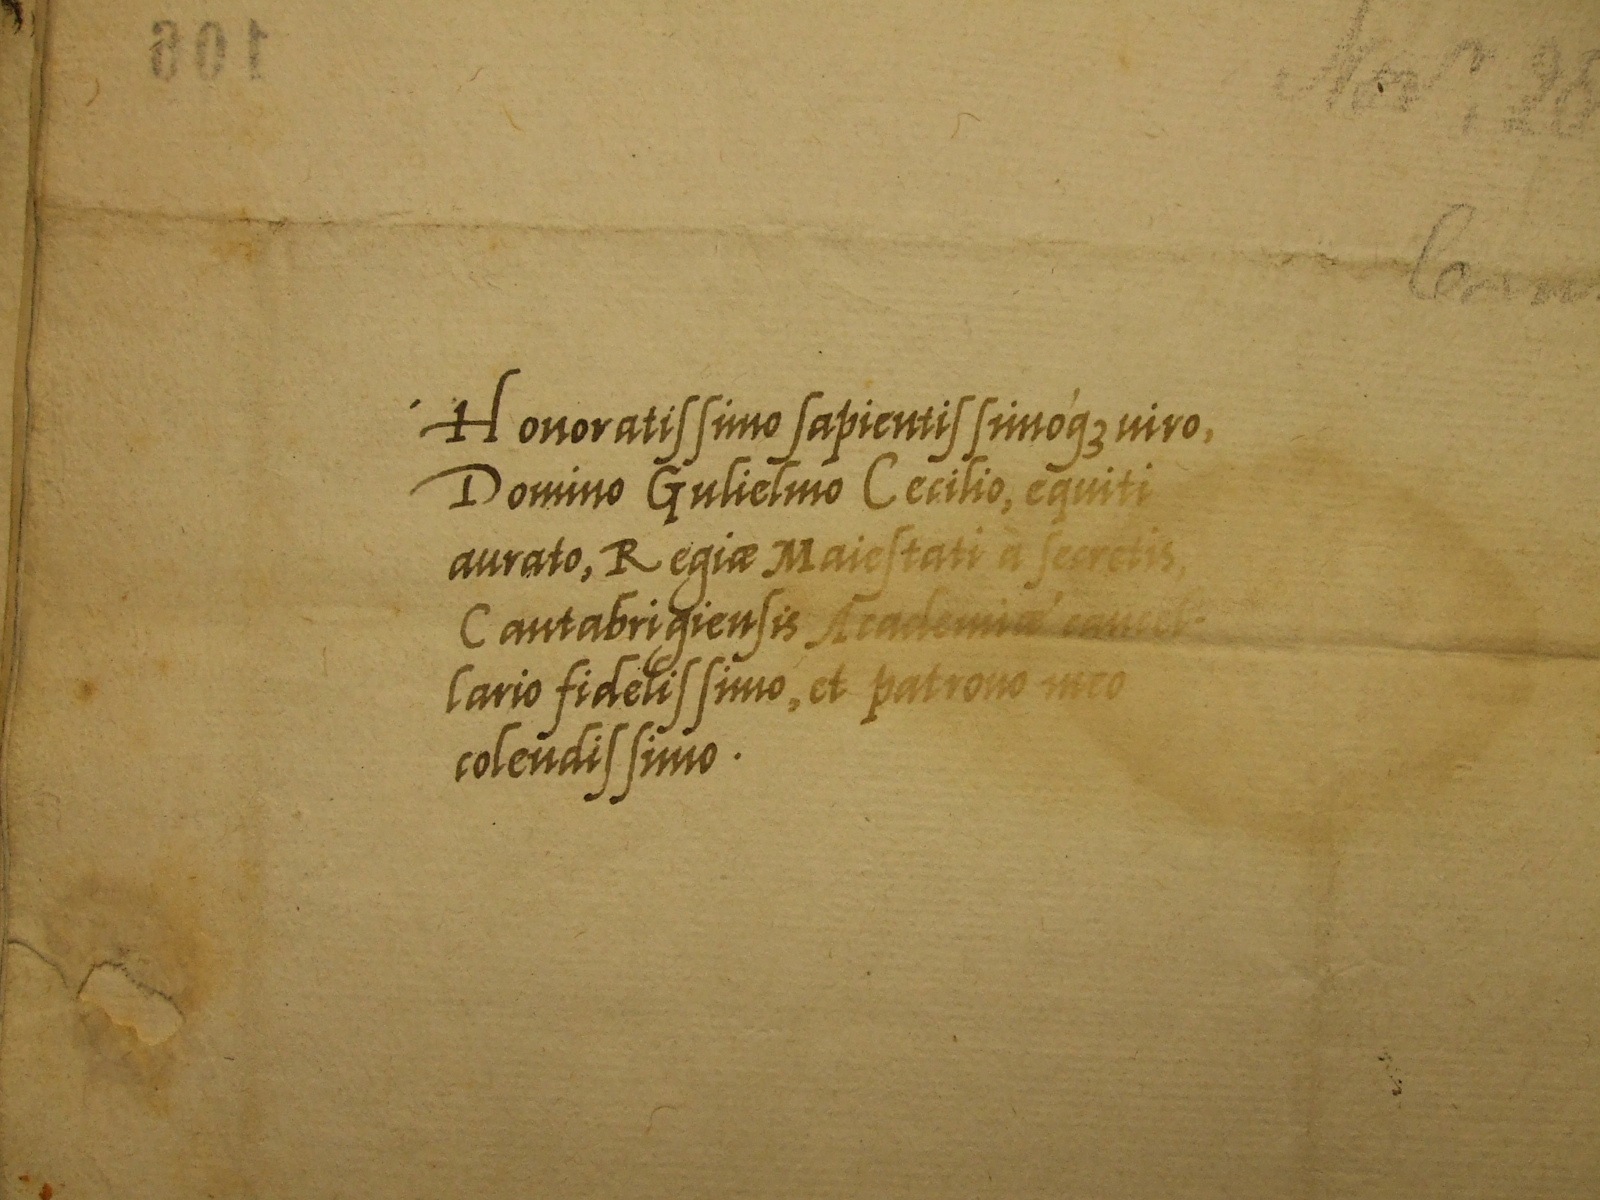 Honoratissimo sapientissimóqꝫ uiro,
Domino Gulielmo Cecilio, equiti
aurato, Regiæ Maiestati à secretis,
Cantabrigiensis Academiæ cancel-
lario fidelissimo, et patrono meo
colendissimo.